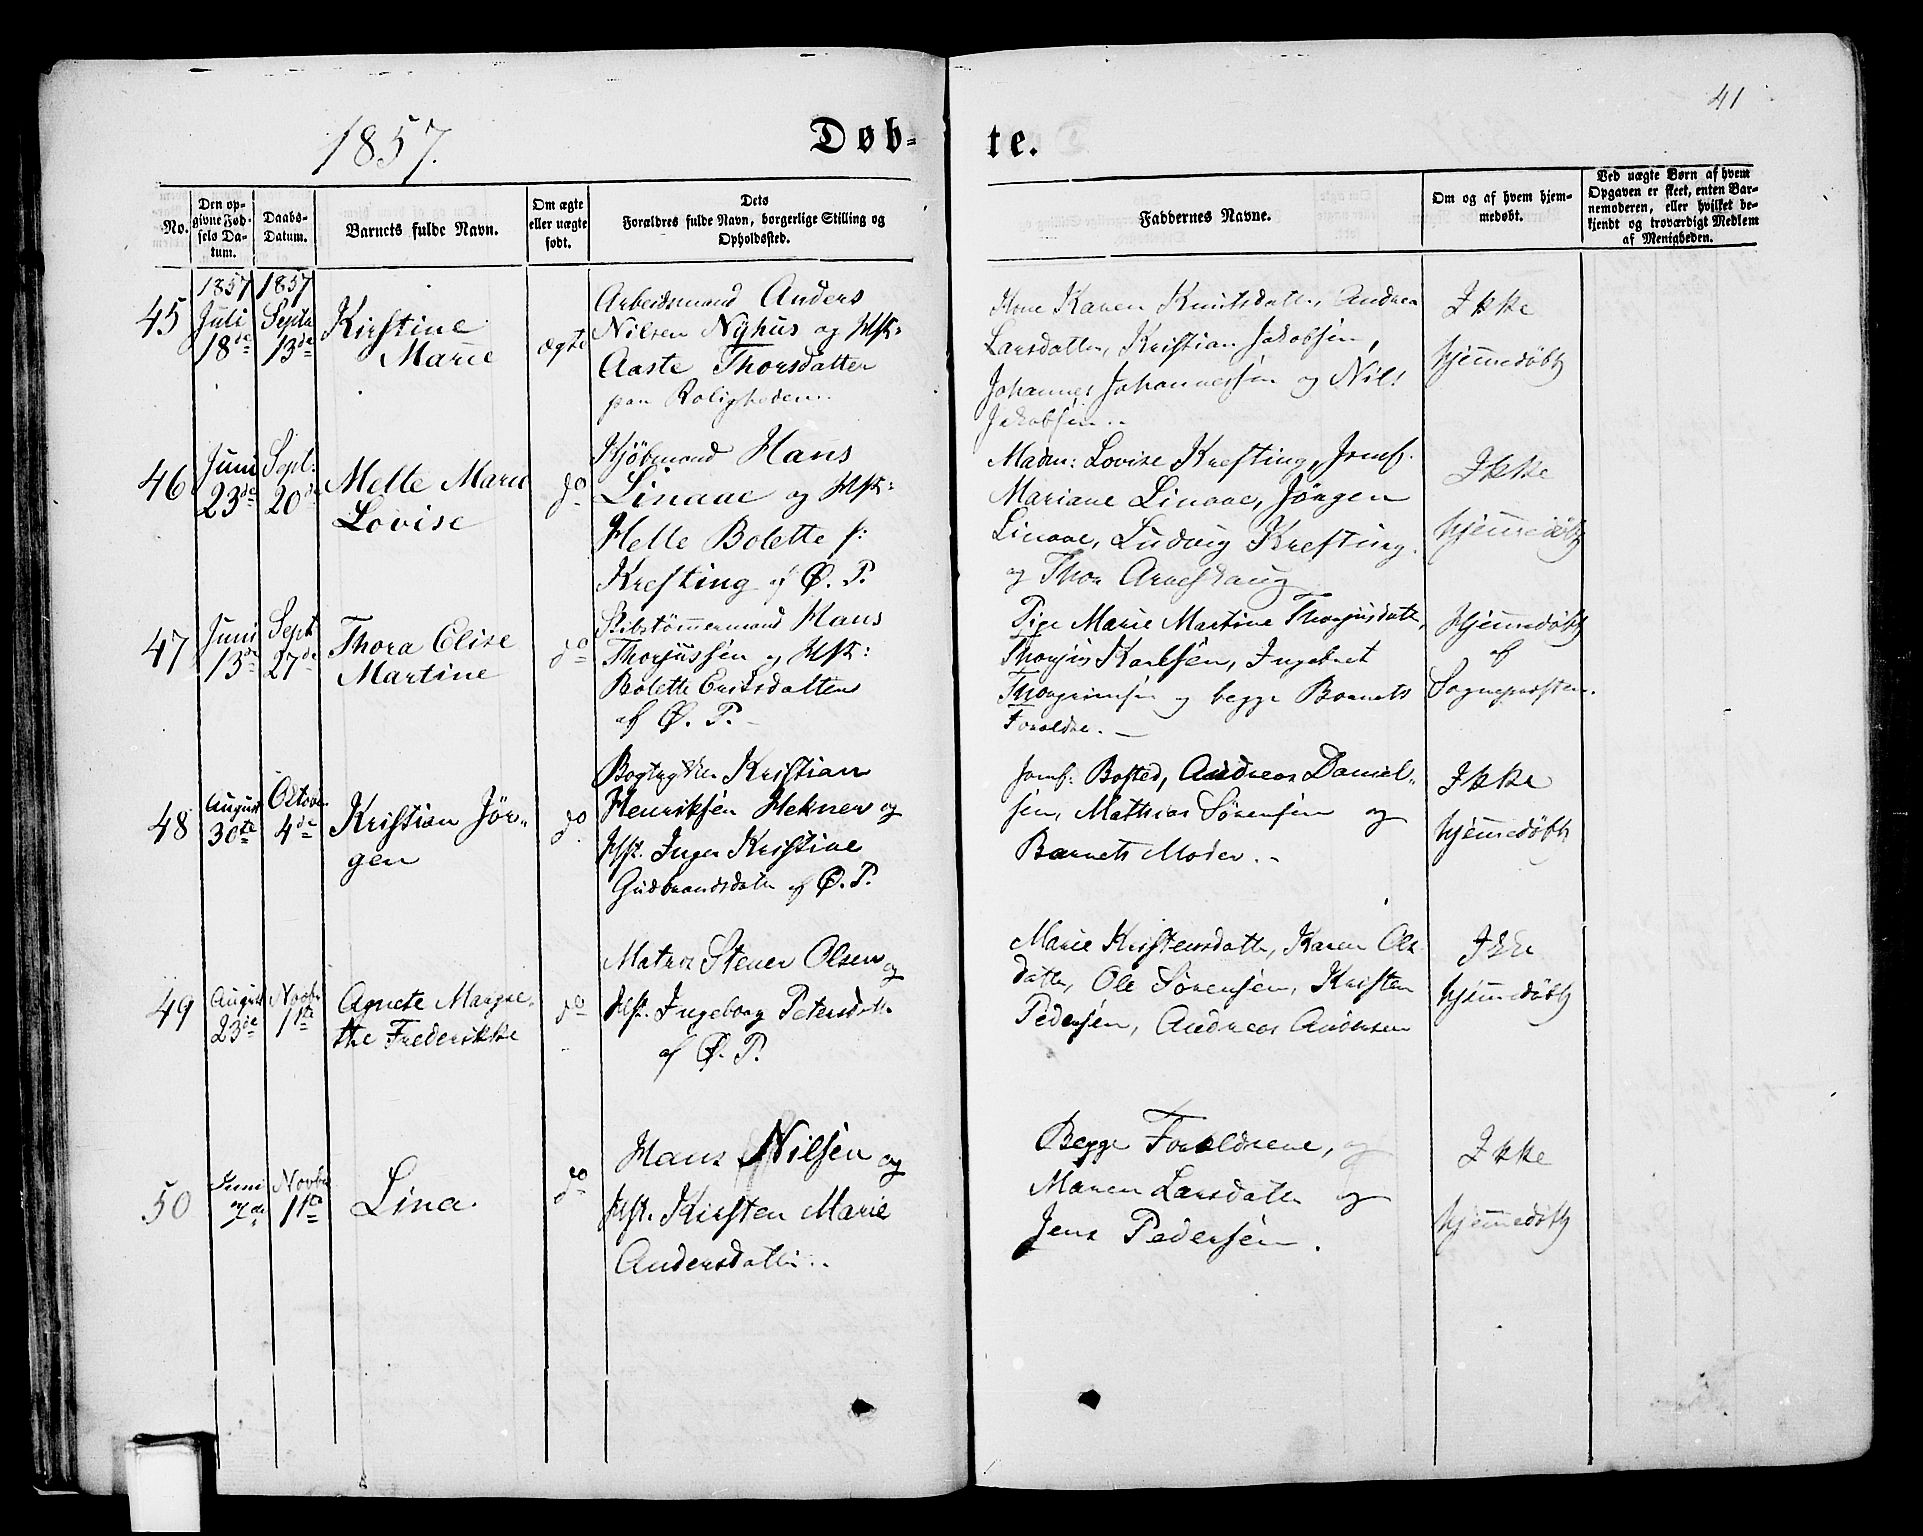 41
1857.
Døb-
te.
No.
Den op-
givne Fød-
sels Da-
tum.
Daabs-
Datum.
Barnets fulde Navn.
Om ægte
eller uægte
født.
Dets
Forældres fulde Navn, borgerlige Stilling og
Opholdssted.
Faddernes Navne.
Om og af hvem hjem-
medøbt.
Ved uægte Børn af hvem
Opgaven er skeet, enten Bar-
nemoderen, eller hvilket be-
kjendt og troværdigt Medlem
af Menigheden.
45
1857
Juli
18de
1857
Septr
13de
Kirstine
Marie
ægte
Arbeidsmand Anders
Nilsen Nyhus og Hst:
Aaste Thorsdatter
paa Roligheden..
Kone Karen Knutsdatter, Andrea
Larsdatter, Kristian Jakobsen,
Johannes Johannessen og Nils
Jakobsen..
Ikke
hjemmedøbt
46
Juni
23de
Sept:
20de
Mette Marie
Lovise
do
Kjøbmand Hans
Linaae og Hst:
Helle Bolette f:
Krefting af Ø. P.
Madm: Lovise Krefting, Jomf.
Mariane Linaae, Jörgen
Linaae, Ludvig Krefting
og Thor Arveschaug
Ikke
hjemmedøbt
47
Juni
13de
Sept
27de
Thora Elise
Martine
do
Skibstömmermand Hans
Thorjussen og Hst:
Bolette Eriksdatter
af Ø. P. -
Pige Marie Martine Thorjusdatte,
Thorjus Karlsen, Ingebret
Thorgrimsen og begge Barnets
Forældre. -
Hjemmedøbt
af
Sognepresten.
48
August
30te
Octobr
4de
Kristian Jör-
gen
do
Bogtrykker Kristian
Henriksen Hekner og
Hst. Inger Kristine
Gudbrandsdatter af Ø. P.
Jomf: Bosted, Andreas Daniel-
sen, Mathias Sørensen og
Barnets Moder. -
Ikke
hjemmedøbt
49
August
23de
Novbr
1ste
Agnete Margre-
the Frederikke
do
Matros Stener Olsen og
Hst. Ingeborg Petersdatter
af Ø. P.
Marie Kristensdatter, Karen Ols
datter, Ole Sörensen, Kristen
Pedersen, Andreas Andersen
Ikke
hjemmedøbt
50
Juni
7de
Novbr
1ste
Lina.
do
Hans Nilsen og
Hst. Kirsten Marie
Andersdatter..
Begge Forældrene, og
Maren Larsdatter og
Jens Pedersen.
Ikke
hjemmedøbt